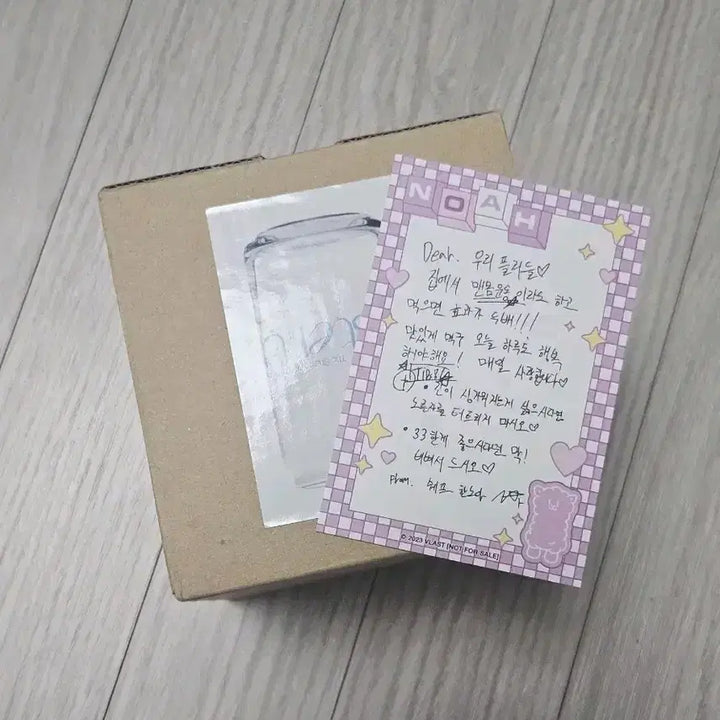 NOAH
Dear. 우리 플리들♡
집에서 맨몸운동 이라도 하고
먹으면 효과가 두배!!!
맛있게 먹구 오늘 하루도 행복
하이야해요! 매일 사랑합니다♡
• 간이 싱거워지는게 싫으시다면
노른자를 터트리지 마시오♡
• 33한게 좋으시다면 막!
비벼서 드시오♡
From. 쉐프 한노아
© 2023 VLAST [NOT FOR SALE]